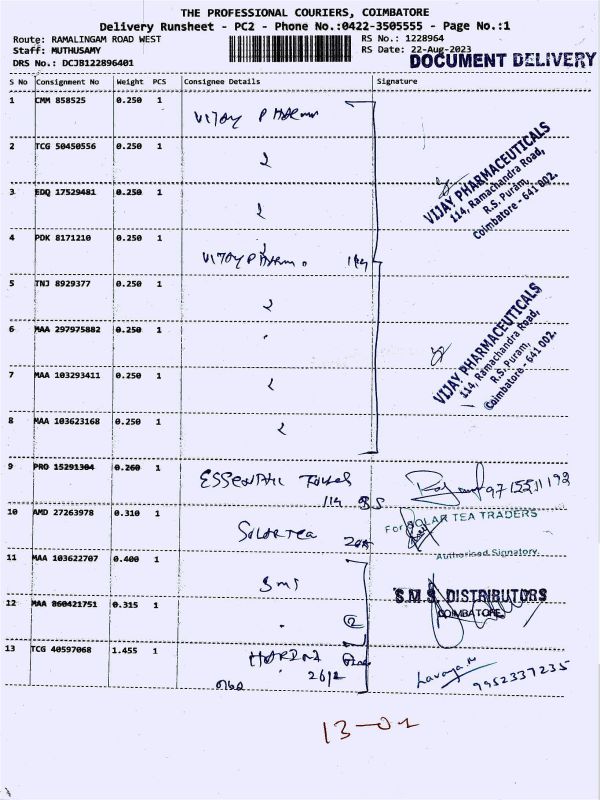 THE PROFESSIONAL COURIERS, COIMBATORE
Delivery Runsheet - PC2 - Phone No.:0422-3505555 - Page No.:1
Route: RAMALINGAM ROAD WEST
RS No.: 1228964
Staff: MUTHUSAMY
RS Date: 22-Aug-2023
DRS No.: DCJB122896401
DOCUMENT DELIVERY
S No Consignment No Weight PCS Consignee Details Signature
1 CMM 858525 0.250 1 VIJAY PHARM
2 TCG 50450556 0.250 1
VIJAY PHARMACEUTICALS
114, Ramachandra Road,
R.S. Puram,
Coimbatore - 641 002.
3 EDQ 17529481 0.250 1
4 PDK 8171210 0.250 1 VIJAY PHARM.
5 TNJ 8929377 0.250 1
6 MAA 297975882 0.250 1
VIJAY PHARMACEUTICALS
114, Ramachandra Road,
R.S. Puram,
Coimbatore - 641 002.
7 MAA 103293411 0.250 1
8 MAA 103623168 0.250 1
9 PRO 15291304 0.260 1 ESSENTIAL
114
10 AMD 27263978 0.310 1 SOLAR TEA
For SOLAR TEA TRADERS
Authorised Signatory.
11 MAA 103622707 0.400 1 SMS
S.M.S. DISTRIBUTORS
COIMBATORE
12 MAA 860421751 0.315 1
13 TCG 40597068 1.455 1 HARINI
Lavanya
9952337235